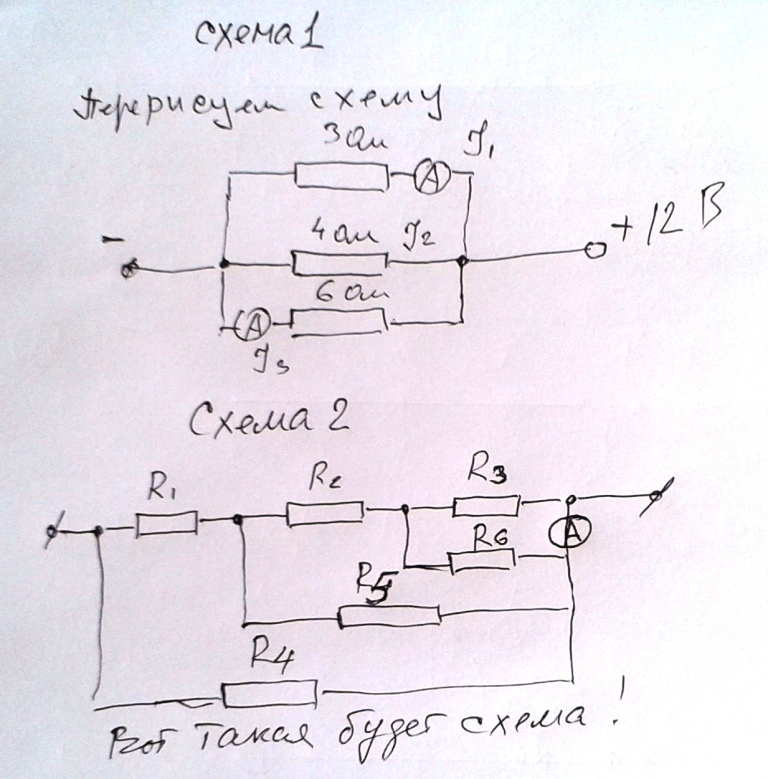 схема 1
Перерисуем схему
3 Ом A J₁
- 4 Ом J₂ +12 В
6 Ом
A
J₃
Схема 2
R₁ R₂ R₃
A
R6
R5
R4
Вот такая будет схема!